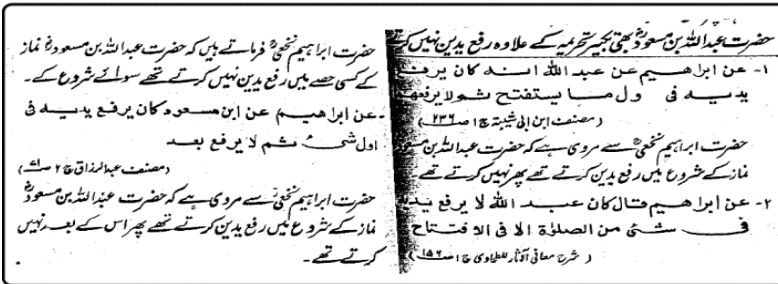 حضرت عبداللہ بن مسعودؓ بھی تکبیر تحریمہ کے علاوہ رفع یدین نہیں کرتے
۱- عن ابراهيم عن عبد الله انه كان يرفع
يديه فى ول ما يستفتح ثم لا يرفعهما
(مصنف ابن ابی شیبۃ ج۱ ص۲۳۶)
حضرت ابراہیم نخعیؒ سے مروی ہے کہ حضرت عبداللہ بن مسعود
نماز کے شروع میں رفع یدین کرتے تھے پھر نہیں کرتے تھے
۲- عن ابراهيم قال كان عبد الله لا يرفع يديه
فى شئ من الصلوٰة الا فى الافتتاح
(شرح معانی الآثار للطحاوی ج۱ ص۱۵۶)
حضرت ابراہیم نخعیؒ فرماتے ہیں کہ حضرت عبداللہ بن مسعودؓ نماز
کے کسی حصے میں رفع یدین نہیں کرتے تھے سوائے شروع کے۔
-عن ابراهيم عن ابن مسعود كان يرفع يديه فى
اول شئ ثم لا يرفع بعد
(مصنف عبدالرزاق ج۲ ص۷۱)
حضرت ابراہیم نخعیؒ سے مروی ہے کہ حضرت عبداللہ بن مسعودؓ
نماز کے شروع میں رفع یدین کرتے تھے پھر اس کے بعد نہیں
کرتے تھے۔